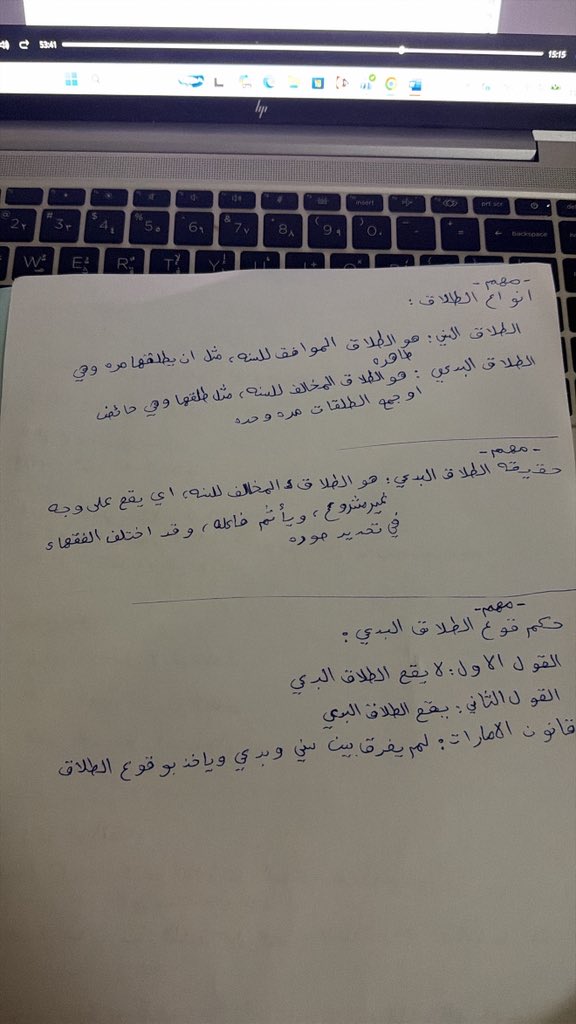 53:41
15:15
hp
insert
prt scr
@ 2 ٢ # 3 ٣ $ 4 ٤ % 5 ٥ ^ 6 ٦ & 7 ٧ * 8 ٨ ( 9 ٩ ) 0 ٠ - + = backspace
W E R T Y
-مهم-
انواع الطلاق :
الطلاق السني : هو الطلاق الموافق للسنه، مثل ان يطلقها مره وهي
طاهره
الطلاق البدعي : هو الطلاق المخالف للسنه، مثل طلقها وهي حائض
او جمع الطلقات مره وحده
-مهم-
حقيقه الطلاق البدعي : هو الطلاق المخالف للسنه، اي يقع على وجه
غير مشروع، ويأثم فاعله، وقد اختلف الفقهاء
في تحديد صوره
-مهم-
حكم قوع الطلاق البدعي :
القول الاول : لا يقع الطلاق البدعي
القول الثاني : يقع الطلاق البدعي
قانون الامارات : لم يفرق بين سني وبدعي وياخذ بوقوع الطلاق